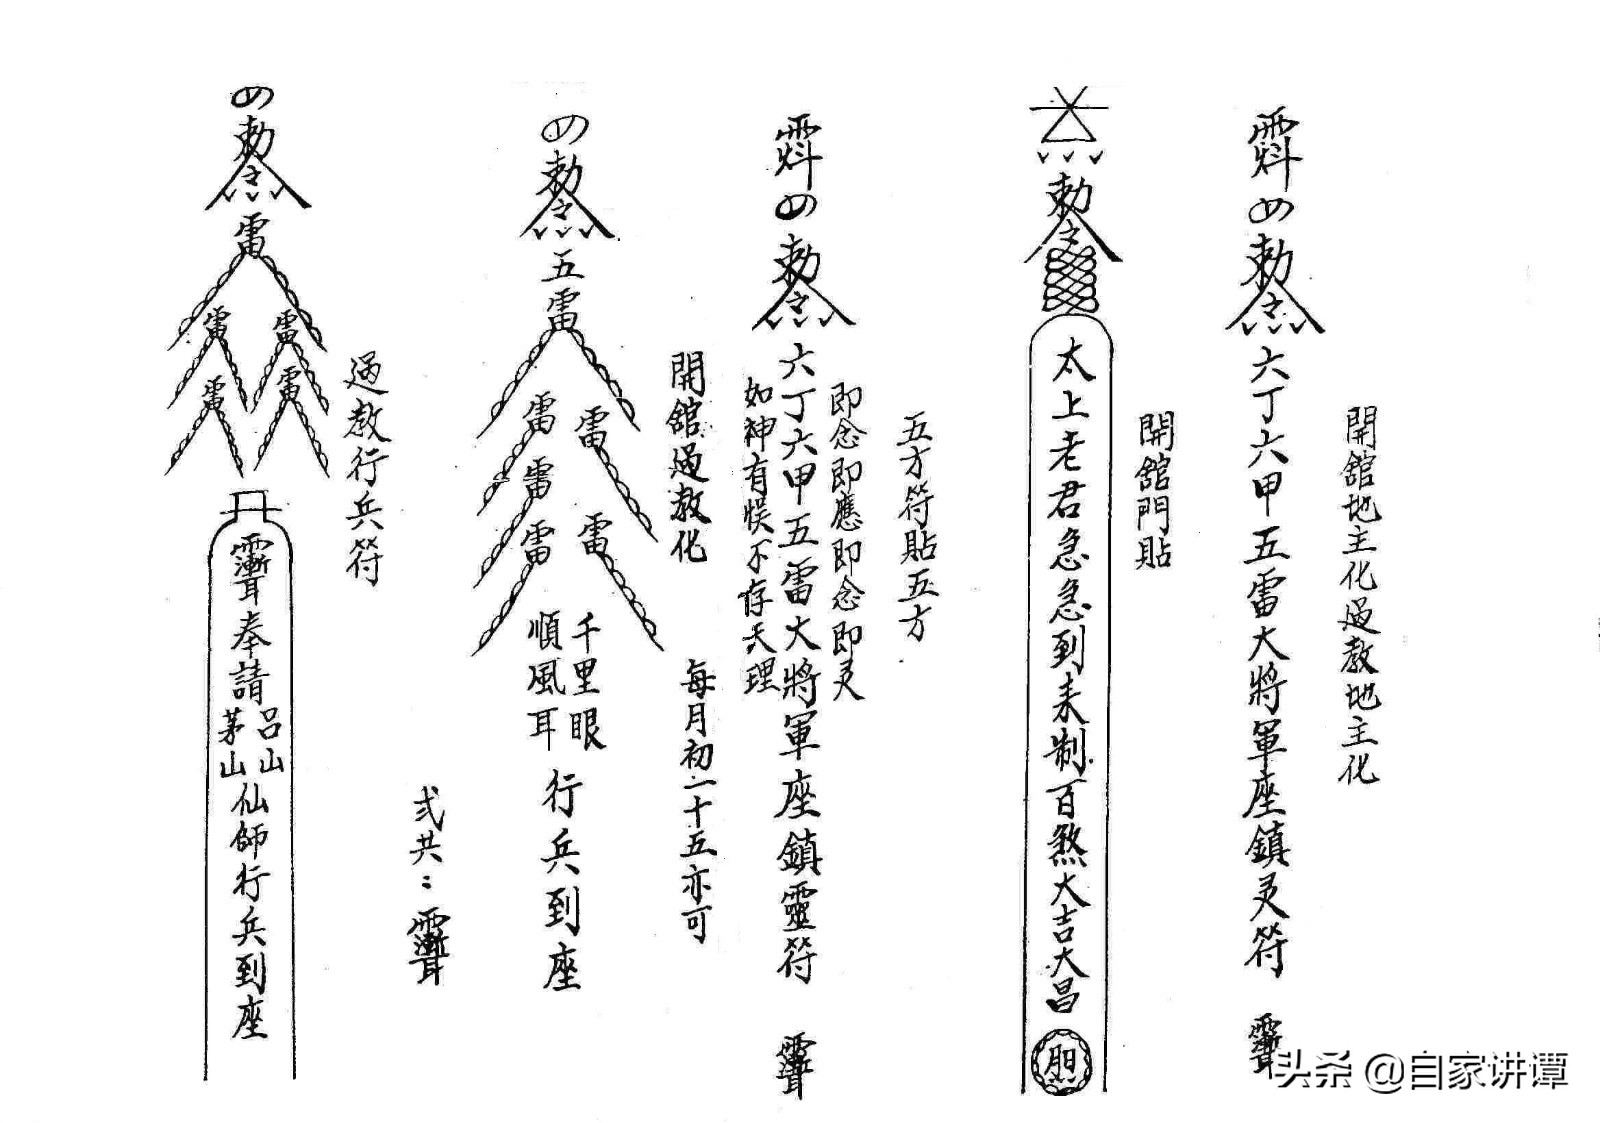 開舘地主化過教地主化
敕令
六丁六甲五雷大將軍座鎮灵符
開舘門貼
敕令
太上老君急急到来制百煞大吉大昌
胆
五方符貼五方
敕令
即念即應即念即灵
六丁六甲五雷大將軍座鎮靈符
如神有悞不存天理
開舘過教化
每月初一十五亦可
敕令
五雷
雷
雷
雷
雷
雷
千里眼
順風耳
行兵到座
弍共：
過教行兵符
敕令
雷
雷
雷
雷
雷
奉請
呂山
茅山
仙師行兵到座
头条 @自家讲谭